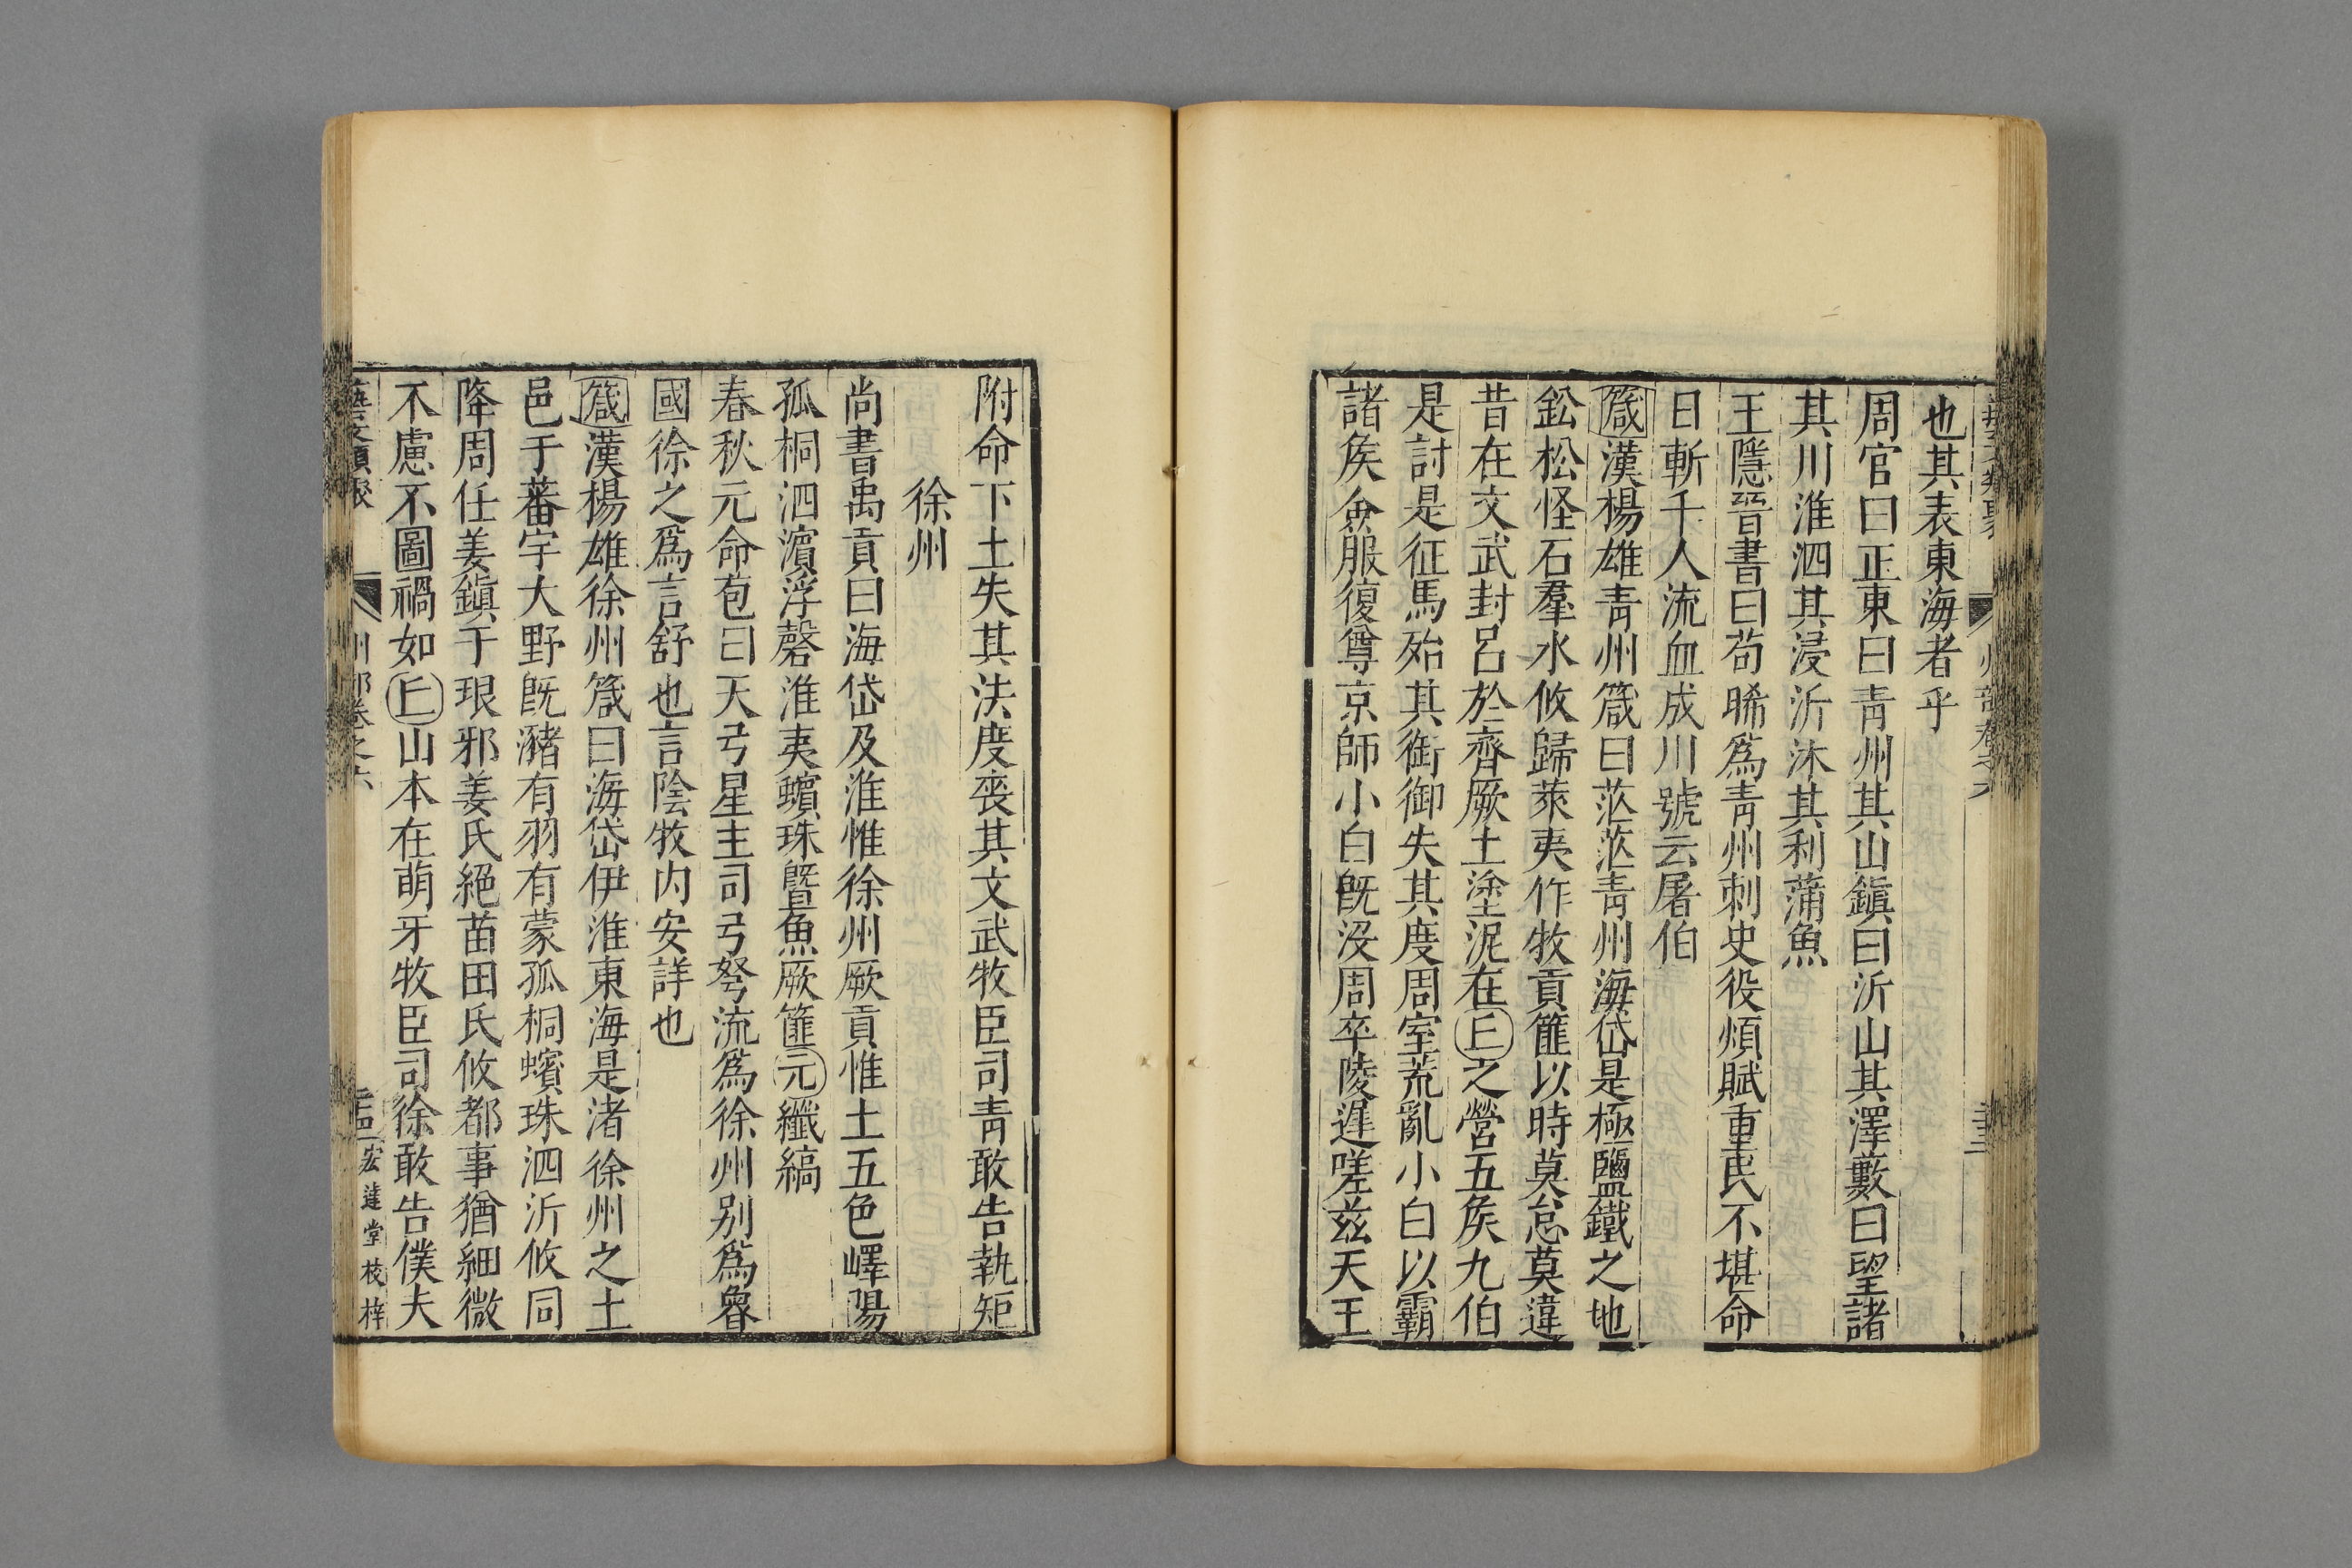 也其表東海者乎
周官曰正東曰靑州其山鎭曰沂山其澤藪曰望諸
其川淮泗其浸沂沐其利蒲魚
王隱晉書曰苟晞爲靑州刺史役煩賦重民不堪命
日斬千人流血成川號云屠伯
箴漢楊雄靑州箴曰茫茫靑州海岱是極鹽鐵之地
鈆松怪石羣水攸歸萊夷作牧貢篚以時莫怠莫違
昔在文武封呂於齊厥土塗泥在丘之營五矦九伯
是討是征馬殆其銜御失其度周室荒亂小白以霸
諸矦僉服復尊京師小白旣沒周卒陵遲嗟兹天王
附命下土失其法度喪其文武牧臣司靑敢告執矩
徐州
尚書禹貢曰海岱及淮惟徐州厥貢惟土五色嶧陽
孤桐泗濵浮磬淮夷蠙珠曁魚厥篚元纖縞
春秋元命苞曰天弓星主司弓弩流爲徐州别爲魯
國徐之爲言舒也言陰牧内安詳也
箴漢楊雄徐州箴曰海岱伊淮東海是渚徐州之土
邑于蕃宇大野旣瀦有羽有蒙孤桐蠙珠泗沂攸同
降周任姜鎭于琅邪姜氏絕苗田氏攸都事猶細微
不慮不圖禍如丘山本在萌牙牧臣司徐敢告僕夫
藝文類聚 州部卷之六 宏達堂校梓